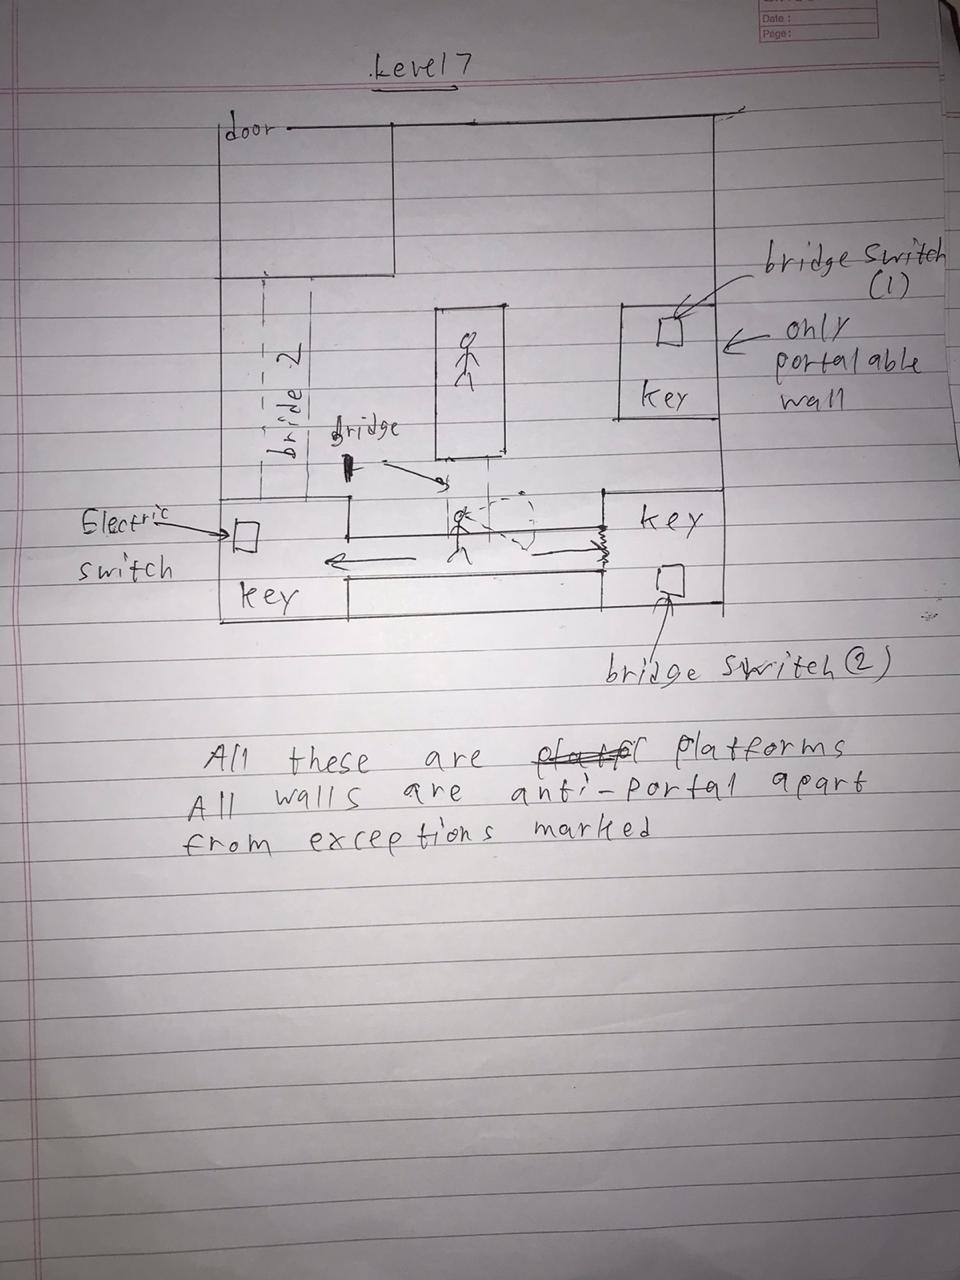 Date :
Page:
Level 7
door
bridge switch
(1)
only
portalable
wall
key
bride 2
bridge
Electric
switch
key
key
bridge switch (2)
All these are platforms
All walls are anti-portal apart
from exceptions marked